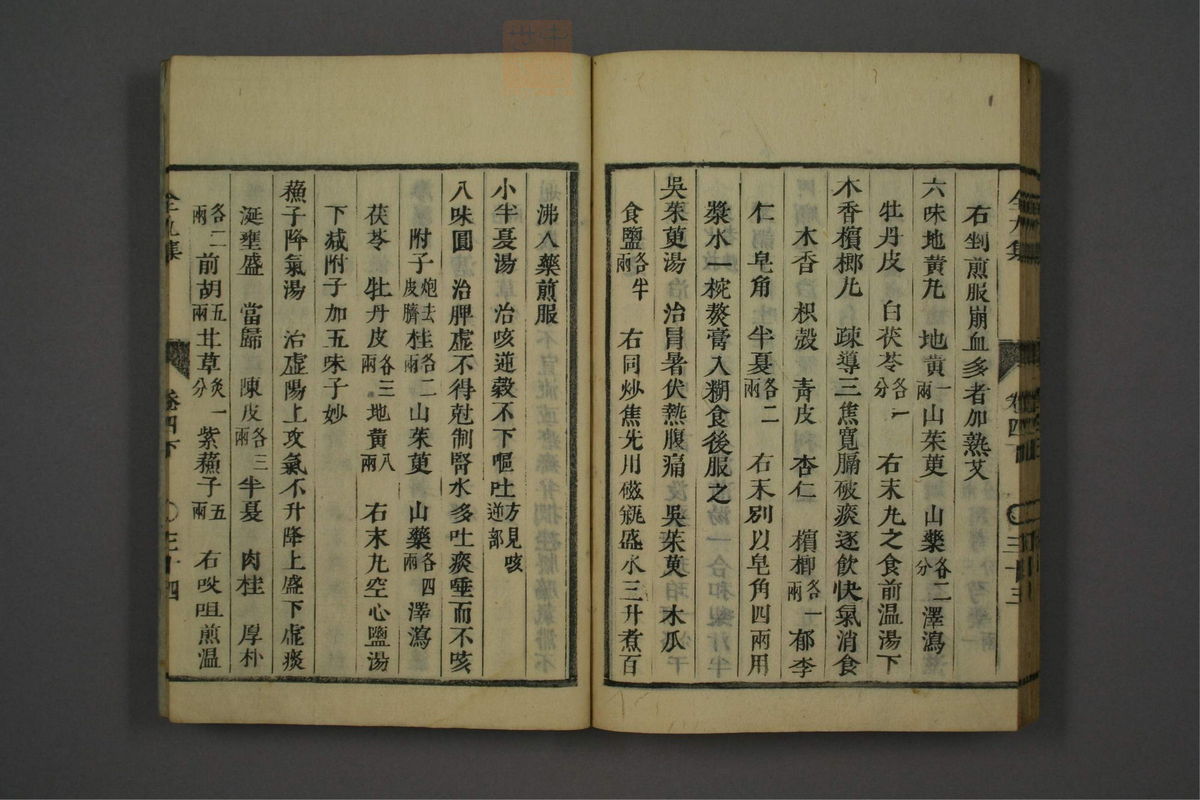 右剉煎服崩血多者加熟艾
六味地黃圥 地黃一兩山茱萸 山藥各二分澤瀉
牡丹皮 白茯苓各一分 右末圥之食前温湯下
木香檳榔圥 疎導三焦寬膈破痰逐飲快氣消食
木香 枳殼 青皮 杏仁 檳榔各一兩郁李
仁 皂角 半夏各二兩 右末別以皂角四兩用
漿水一椀熬膏入糊食後服之
吳茱萸湯 治冐暑伏熱腹痛 吳茱萸 木瓜
食鹽各半兩 右同炒焦先用磁甁盛水三升煮百
全九集 卷四下 三十三
沸入藥煎服
小半夏湯 治咳逆穀不下嘔吐方見咳逆部
八味圓 治脾虛不得尅制腎水多吐痰唾而不咳
附子炮去皮臍桂各二兩山茱萸 山藥各四兩澤瀉
茯苓 牡丹皮各三兩地黃八兩 右末圥空心鹽湯
下減附子加五味子妙
蘓子降氣湯 治虛陽上攻氣不升降上盛下虛痰
涎壅盛 當歸 陳皮各三兩半夏 肉桂 厚朴
各二兩前胡五兩甘草炙一分紫蘓子五兩 右㕮咀煎温
全九集 卷四下 三十四